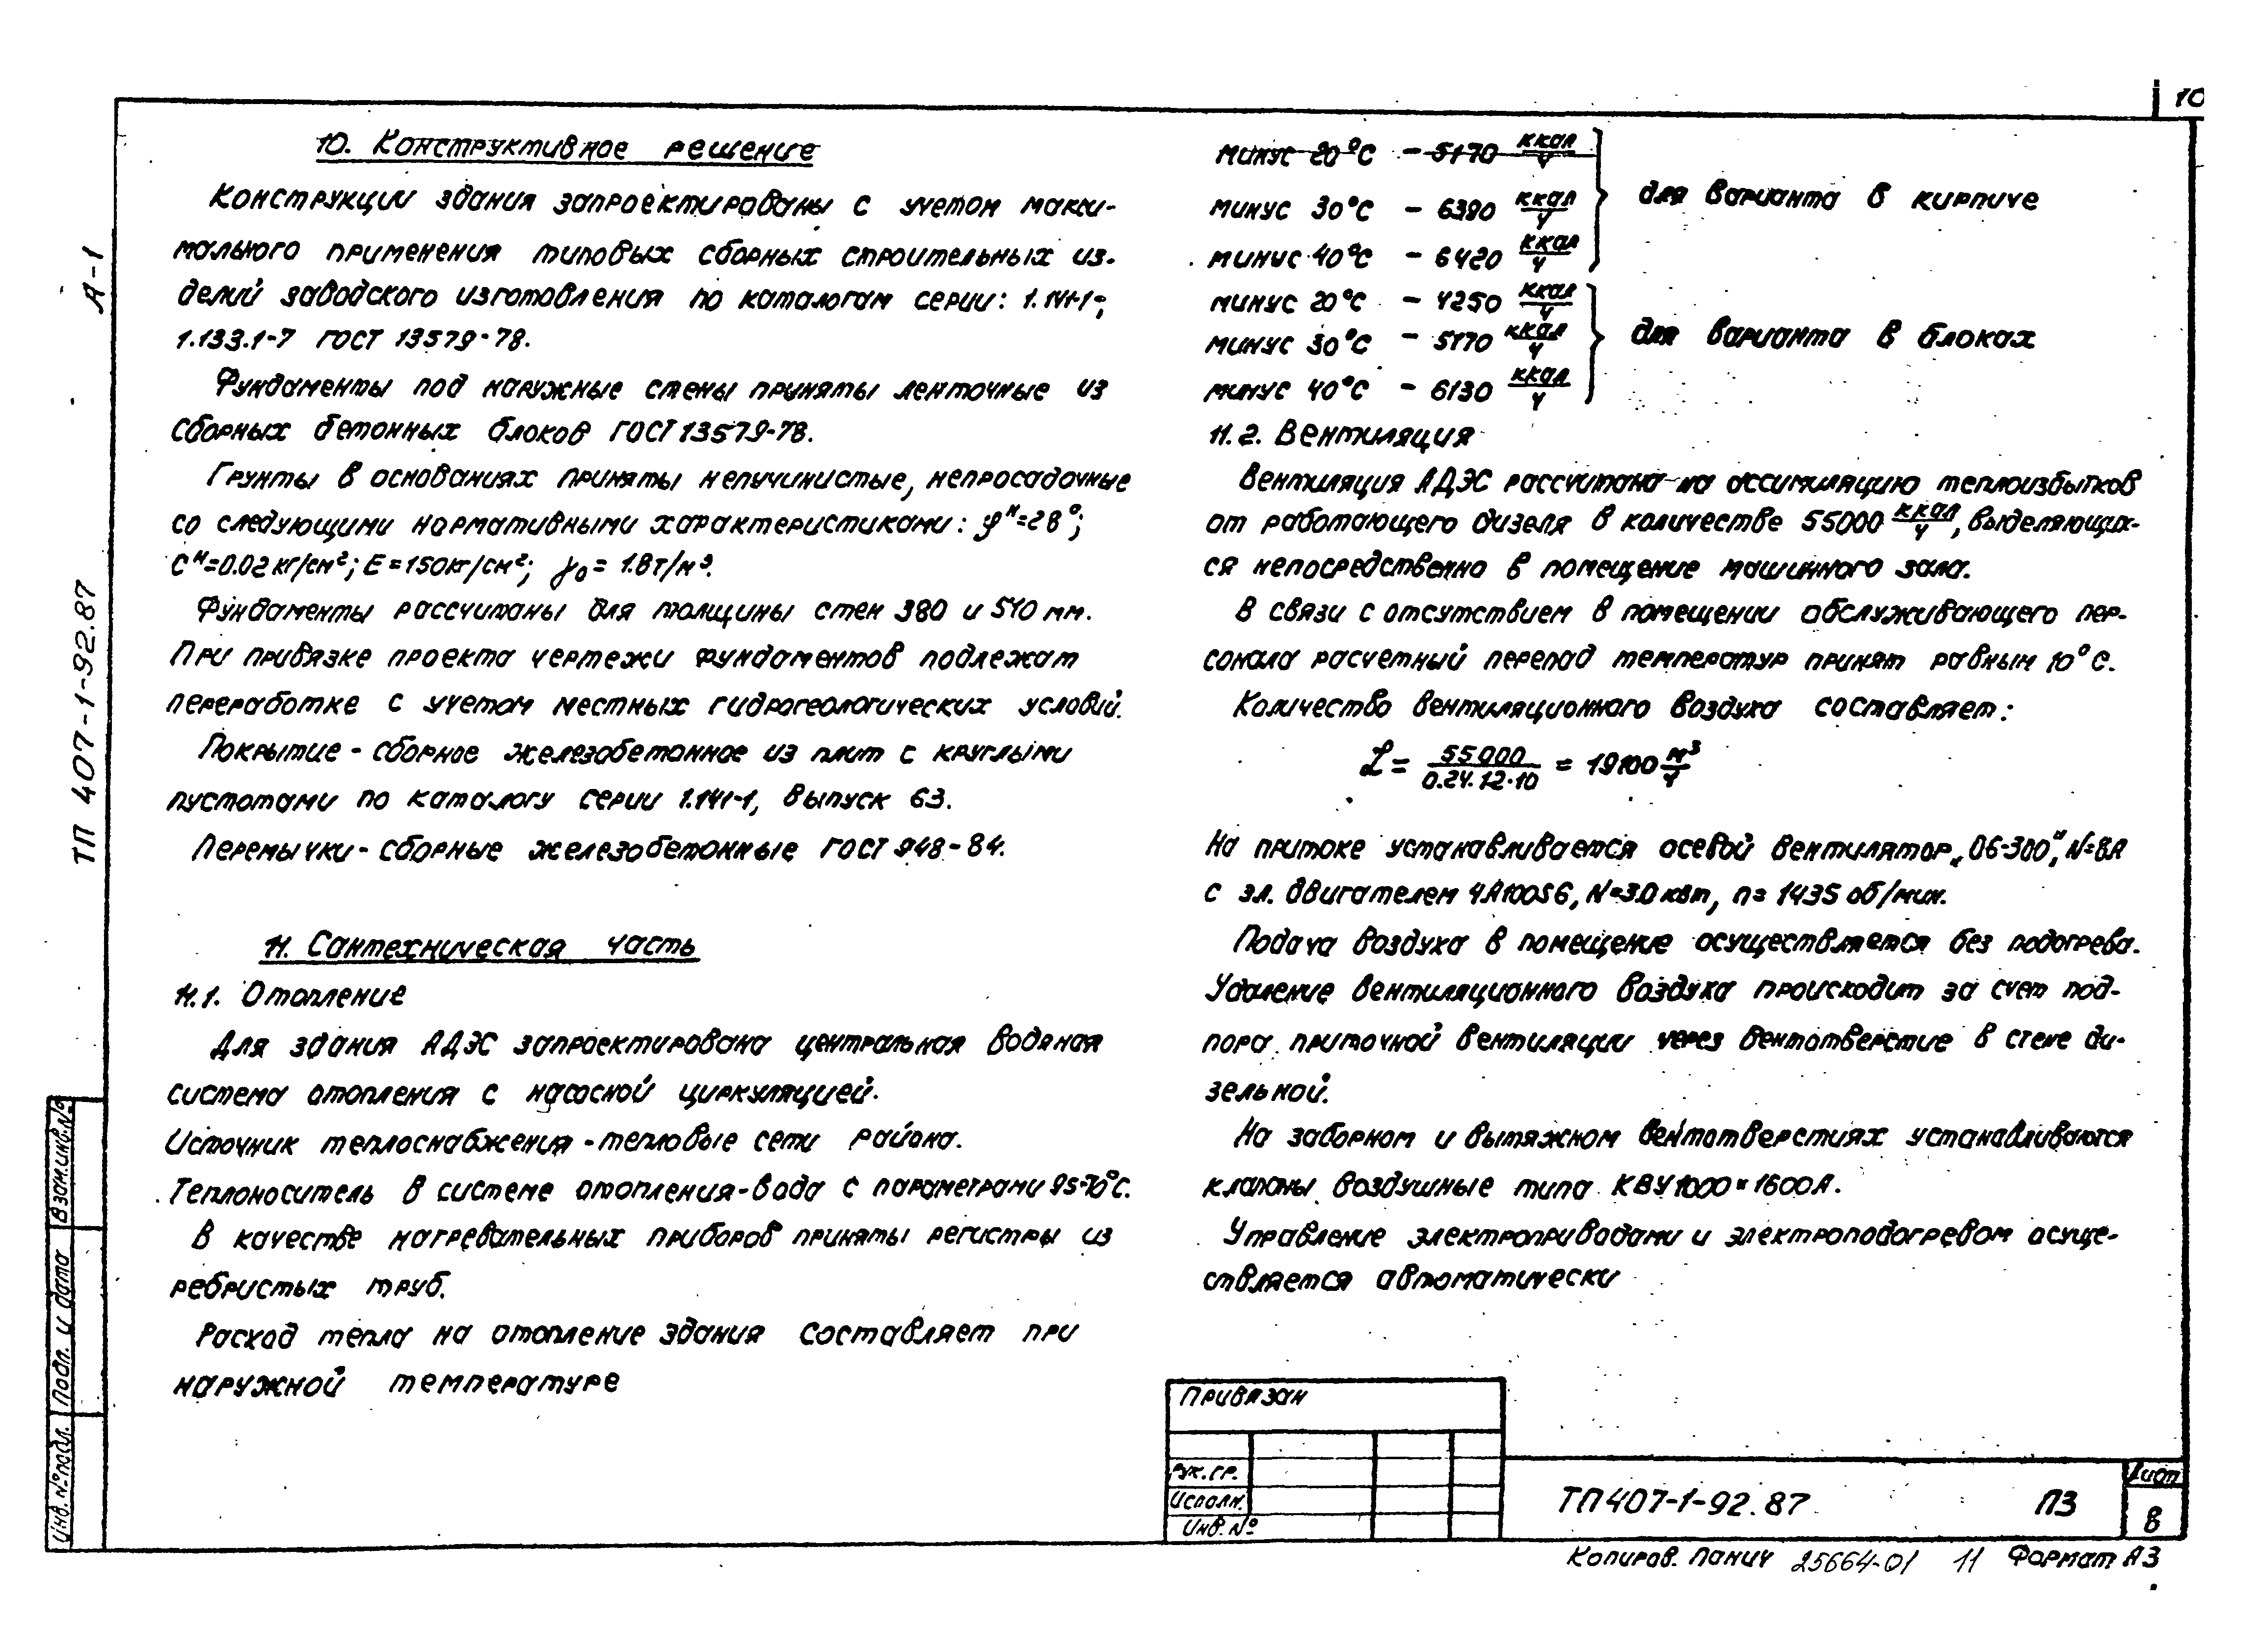 10
10. Конструктивное решение
Конструкции здания запроектированы с учетом макси-
мального применения типовых сборных строительных из-
делий заводского изготовления по каталогам серии: 1.141-1;
1.133.1-7 ГОСТ 13579-78.
Фундаменты под наружные стены приняты ленточные из
сборных бетонных блоков ГОСТ 13579-78.
Грунты в основаниях приняты непучинистые, непросадочные
со следующими нормативными характеристиками: φⁿ=28°;
Cⁿ=0.02 кг/см²; E=150кг/см²; γ₀= 1.8т/м³.
Фундаменты рассчитаны для толщины стен 380 и 510 мм.
При привязке проекта чертежи фундаментов подлежат
переработке с учетом местных гидрогеологических условий.
Покрытие - сборное железобетонное из плит с круглыми
пустотами по каталогу серии 1.141-1, выпуск 63.
Перемычки - сборные железобетонные ГОСТ 948-84.
11. Сантехническая часть
11.1. Отопление
Для здания АДЭС запроектирована центральная водяная
система отопления с насосной циркуляцией.
Источник теплоснабжения - тепловые сети района.
Теплоноситель в системе отопления-вода с параметрами 95-70°С.
В качестве нагревательных приборов приняты регистры из
ребристых труб.
Расход тепла на отопление здания составляет при
наружной температуре
минус 20°С - 5170 ккал/ч
минус 30°С - 6390 ккал/ч для варианта в кирпиче
минус 40°С - 6420 ккал/ч
минус 20°С - 4250 ккал/ч
минус 30°С - 5170 ккал/ч для варианта в блоках
минус 40°С - 6130 ккал/ч
11.2. Вентиляция
Вентиляция АДЭС рассчитана на ассимиляцию теплоизбытков
от работающего дизеля в количестве 55000 ккал/ч, выделяющих-
ся непосредственно в помещение машинного зала.
В связи с отсутствием в помещении обслуживающего пер-
сонала расчетный перепад температур принят равным 10°С.
Количество вентиляционного воздуха составляет:
L = 55000/0.24·1.2·10 = 19100 м³/ч
На притоке устанавливается осевой вентилятор „06-300", N=8А
с эл. двигателем 4А100S6, N=3.0 квт, n= 1435 об/мин.
Подача воздуха в помещение осуществляется без подогрева.
Удаление вентиляционного воздуха происходит за счет под-
пора приточной вентиляции через вентотверстие в стене ди-
зельной.
На заборном и вытяжном вентотверстиях устанавливаются
клапаны воздушные типа КВУ 1000×1600А.
Управление электроприводами и электроподогревом осуще-
ствляется автоматически
А-1
ТП 407-1-92.87
Взам.инв.№
Подп. и дата
Инв.№подл.
Привязан
Рук.гр.
Исполн.
Инв.№
ТП407-1-92.87 ПЗ
Лист
8
Копиров. Панич 25664-01 11 Формат А3